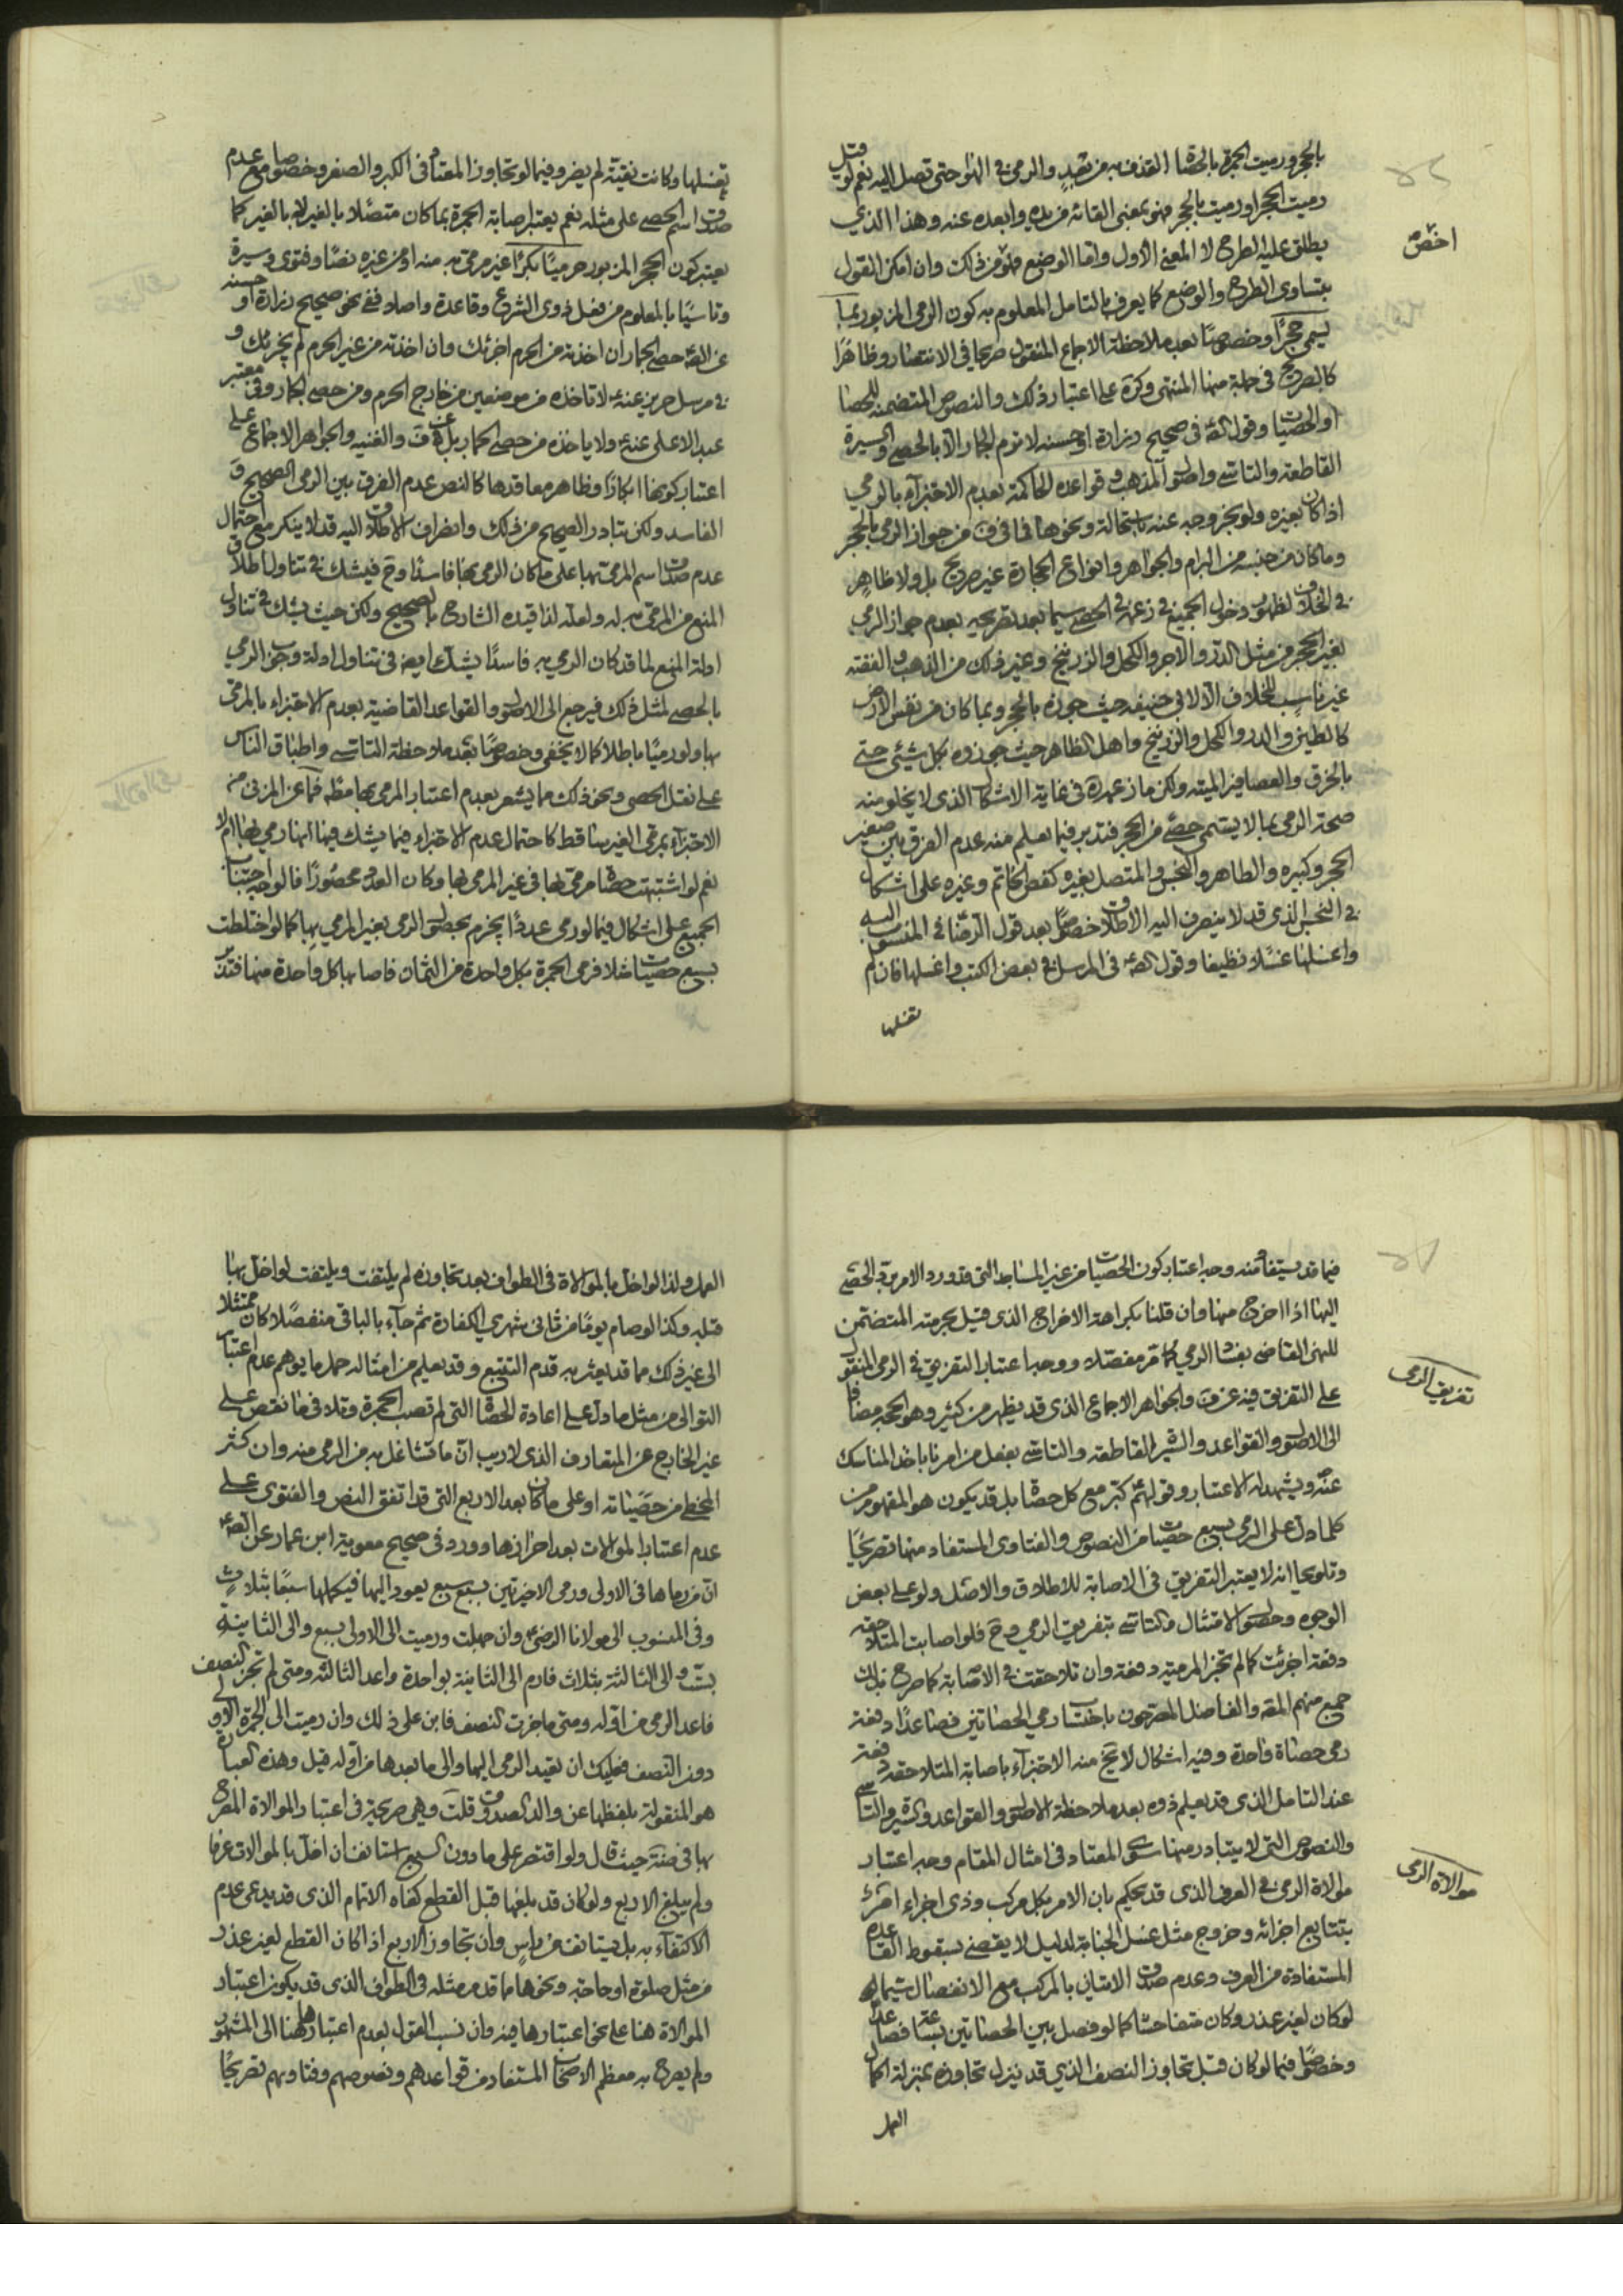 بالحجر ورميت الجمرة بالحصا القذف به من بعيد والرمي في الهواء حتى تصل اليه نعم لو قيل
رميت الحجر او رميت بالحجر فهو بمعنى القائه من يده وابعده عنه وهذا الذي
يطلق عليه الطرح لا المعنى الاول واما الوضع فهو من ذلك وان امكن القول
اخص
بتساوي الطرح والوضع كما يعرف بالتامل المعلوم به كون الرمي المزبور بما
يسمى حجرا وخصوصا بعد ملاحظة الاجماع المنقول صريحا في الانتصار وظاهرا
كالصريح في جملة منها المنتهى وكره على اعتبار ذلك والنصوص المتضمنة للحصا
او الحصيات وقول الصه في صحيح زرارة او حسنه لا ترم الجمار الا بالحصى والسيرة
القاطعة والتاسي واصول المذهب وقواعده الحاكمة بعدم الاجتزاء بالرمي
اذا كان بغيره ولو بخروجه عنه باستحالة ونحوها فما في ف من جواز الرمي بالحجر
وما كان من جنسه من البرام والجواهر وانواع الحجارة غير صريح بل ولا ظاهر
في الخلاف لظهور دخول الجميع في زعمه في الحصى سيما بعد تصريحه بعدم جواز الرمي
لغير الحجر من مثل المدر والاجر والكحل والزرنيخ وغير ذلك من الذهب والفضة
غير ناسب للخلاف الا لابي حنيفه حيث جوزه بالحجر وبما كان من نفس الارض
كالطين والمدر والكحل والزرنيخ واهل الظاهر حيث جوزوه بكل شيئ حتى
بالخرق والعصافير الميته ولكن ما زعمه في غاية الاشكال الذي لا يخلو منه
صحة الرمي بما لا يسمى حصى من الحجر فتدبر فيما يعلم منه عدم الفرق بين صغير
الحجر وكبيره والطاهر والنجس والمتصل بغيره كفص الخاتم وغيره على اشكال
في النجس الذي قد لا ينصرف اليه الاطلاق خصوصا بعد قول الرضا في المنسوب اليه
واغسلها غسلا نظيفا وقول الصه في المرسل في بعض الكتب واغسلها فان لم
تغسلها
تغسلها وكانت نقية لم يضر وفيما لو تجاوز المعتاد في الكبر والصغر وخصوصا مع عدم
صدق اسم الحصى على مثله نعم يعتبر اصابة الجمرة بما كان متصلا بالغير لا بالغير كما
يعتبر كون الحجر المزبور حرميا بكرا غير مرمي به منه او من غيره نصا وفتوى وسيرة
وتاسيا بالمعلوم من فعل ذوي الشرع وقاعدة واصلا ففي نحو صحيح زرارة او حسنه
عن الصه حصى الجمار ان اخذته من الحرم اجزئك وان اخذته من غير الحرم لم يجزئك و
في مرسل حريز عنه لا تاخذه من موضعين من خارج الحرم ومن حصى الجمار وفي معتبر
عبد الاعلى عنه ولا ياخذه من حصى الجمار بل عن ف والغنيه والجواهر الاجماع على
اعتبار كونها ابكارا وظاهر معاقدها كالنص عدم الفرق بين الرمي الصحيح و
الفاسد ولكن تبادر الصحيح من ذلك وانصراف الاطلاق اليه قد لا ينكر مع احتمال
عدم صدق اسم المرمي بها على ما كان الرمي بها فاسدا وح فيشك في تناول اطلاق
المنع من المرمي به له ولعله لذا قيده الشارح بالصحيح ولكن حيث يشك في تناول
ادلة المنع لما قد كان الرمي به فاسدا يشك ايضا في تناول ادلة وجوب الرمي
بالحصى لمثل ذلك فيرجع الى الاصول والقواعد القاضية بعدم الاجتزاء بالمرمي
بها ولو رميا باطلا كما لا يخفى وخصوصا بعد ملاحظة التاسي واطباق الناس
على نقل الحصى ونحو ذلك مما يشعر بعدم اعتبار المرمي بها مطلقا فما عن المزني من
الاجتزاء بمرمي الغير ساقط كاحتمال عدم الاجتزاء فيما يشك فيها انها رمي بها ام لا
نعم لو اشتبهت حصاة مرمي بها في غير المرمي بها وكان العدد محصورا فالوجه اجتناب
الجميع على اشكال فيما لو رمى عددا يجزم بحصول الرمي بغير المرمي بها كما لو اختلطت
بسبع حصيات مثلا فرمى الجمرة بكل واحدة من الثمان فاصابها كل واحدة منها فتدبر
فيما قد يستفاد منه وجه اعتبار كون الحصيات من غير المساجد التي قد ورد الامر برد الحصى
اليها اذا اخرج منها وان قلنا بكراهة الاخراج الذي قيل بحرمته المتضمن
للنهي القاضي بفساد الرمي كما مر مفصلا ووجه اعتبار التفريق في الرمي المنقول
تفريق الرمي
على التفريق فيه عن ف والجواهر الاجماع الذي قد يظهر من كثير وهو الحجه مضافا
الى الاصول والقواعد والسير القاطعة والتاسي بفعل من امرنا باخذ المناسك
عنه ويشهد له الاعتبار وقولهم كبر مع كل حصاة بل قد يكون هو المفهوم من
كلما دل على الرمي بسبع حصيات من النصوص والفتاوى المستفاد منها تصريحا
وتلويحا انه لا يعتبر التفريق في الاصابة للاطلاق والاصل ولو على بعض
الوجوه وحصول الامتثال والتاسي بتفريق الرمي وح فلو اصابت المتلاحقه
دفعة اجزئت كما لم تجز المرميه دفعة وان تلاحقت في الاصابة كما صرح بذلك
جمع منهم المقه والفاضل المصرحون باحتساب رمي الحصاتين فصاعدا دفعة
رمي حصاة واحدة وفيه اشكال لا يخ منه الاجتزاء باصابة المتلاحقه دفعة
عند التامل الذي قد يعلم ذوه بعد ملاحظة الاصول والقواعد والسير والتاسي
والنصوص التي لا يتبادر منها سوى المعتاد في امثال المقام وجه اعتبار
موالاة الرمي في العرف الذي قد يحكم بان الامر بكل مركب وذي اجزاء امر
موالاة الرمي
بتتابع اجزائه وخروج مثل غسل الجنابة لدليل لا يقضي بسقوط القاعدة
المستفادة من العرف وعدم صدق الاتيان بالمركب مع الانفصال سيما
لو كان لغير عذر وكان متفاحشا كما لو فصل بين الحصاتين بساعة فصاعدا
وخصوصا فيما لو كان قبل تجاوز النصف الذي قد ينزل تجاوزه بمنزلة اكمال
العمل
العمل ولذا لو اخل بالموالاة في الطواف بعد تجاوزه لم يلتفت ويلتفت لو اخل بها
قبله وكذا لو صام يوما من ثاني شهري الكفارة ثم جاء بالباقي منفصلا كان ممتثلا
الى غير ذلك مما قد يعثر به قدم التتبع وقد يعلم من امثاله حمل ما يوهم عدم اعتبار
التوالي من مثل ما دل على اعادة الحصاة التي لم تصب الجمرة وتلافي ما نقص على
غير الخارج عن المتعارف الذي لا ريب ان ما تشاغل به من الرمي منه وان كثر
المخطي من حصياته او على ما كان بعد الاربع التي قد اتفق النص والفتوى على
عدم اعتبار الموالات بعد احرازها وورد في صحيح معوية ابن عمار عن الصه
ان من رماها في الاولى ورمى الاخيرتين بسبع سبع يعود اليها فيكملها سبعا بثلاث
وفي المنسوب الى مولانا الرضا وان جهلت ورميت الى الاولى بسبع والى الثانية
بست والى الثالثة بثلاث فارم الى الثانية بواحدة واعد الثالثه ومتى لم تجز النصف
فاعد الرمي من اوله ومتى ما جزت النصف فابن على ذلك وان رميت الى الجمرة الاولى
دون النصف فعليك ان تعيد الرمي اليها والى ما بعدها من اوله قيل وهذه العبارة
هو المنقولة بلفظها عن والد الصدوق قلت وهي صريحة في اعتبار الموالاة المصرح
بها في ضة حيث قال ولو اقتصر على ما دون السبع استانف ان اخل بالموالات عرفا
ولم يبلغ الاربع ولو كان قد بلغها قبل القطع كفاه الاتمام الذي قد يدعى عدم
الاكتفاء به بل يستانف من راس وان تجاوز الاربع اذا كان القطع لغير عذر
من مثل صلوة او حاجة ونحوها مما قد مر مثله في الطواف الذي قد يكون اعتبار
الموالاة هنا على نحو اعتبارها فيه وان نسب القول بعدم اعتبارها هنا الى المشهور
ولم يصرح به معظم الاصحاب المستفاد من قواعدهم ونصوصهم وفتاويهم تصريحا